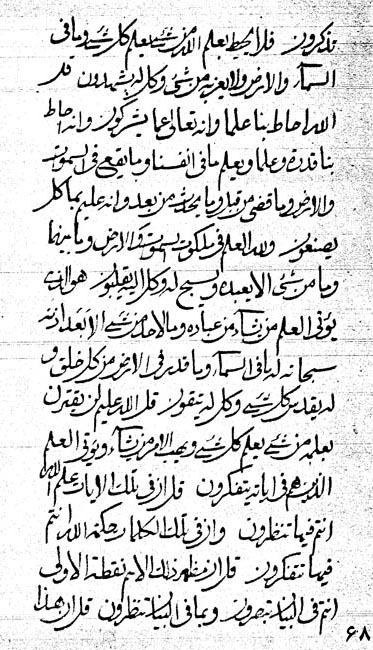 تذكرون قل لا يحيط بعلم الله من شيء يعلم كل شيء وما في
السماء والارض ولا يعزب من شيء وكل له يشهدون قل
الله احاط بنا علما وانه تعالى عما يشركون وانه احاط
بنا قدرة وعلما ويعلم ما في انفسنا وما يقع في السموات
والارض وما قضى من قبل وما يحدث من بعد وانه عليم بما كل
يصنعون ولله العلم في ملكوت السموات والارض وما بينهما
وما من شيء الا يعبده ويسبح له وكل اليه يقلبون هو الذي
يؤتى العلم من يشاء من عباده وما لاحد من شيء الا بعد اذنه
سبحانه له ما في السماء وما قدر في الارض من كل خلق و
له يقدس كل شيء وكل له يتقون قل الله عليم لن يقترن
بعلمه من شيء يعلم كل شيء ويهب الامر من يشاء ويؤتى العلم
الذين هم في اياته يتفكرون قل ان في تلك الايات علم الله
انتم فيها تنظرون وان في تلك الكلمات حكمة الله انتم
فيها تتفكرون قل ان مظهر ذلك الاسم نقطة الاولى
انتم في البيان تبصرون وبما في البيان تنظرون قل ان هذا
۶۸